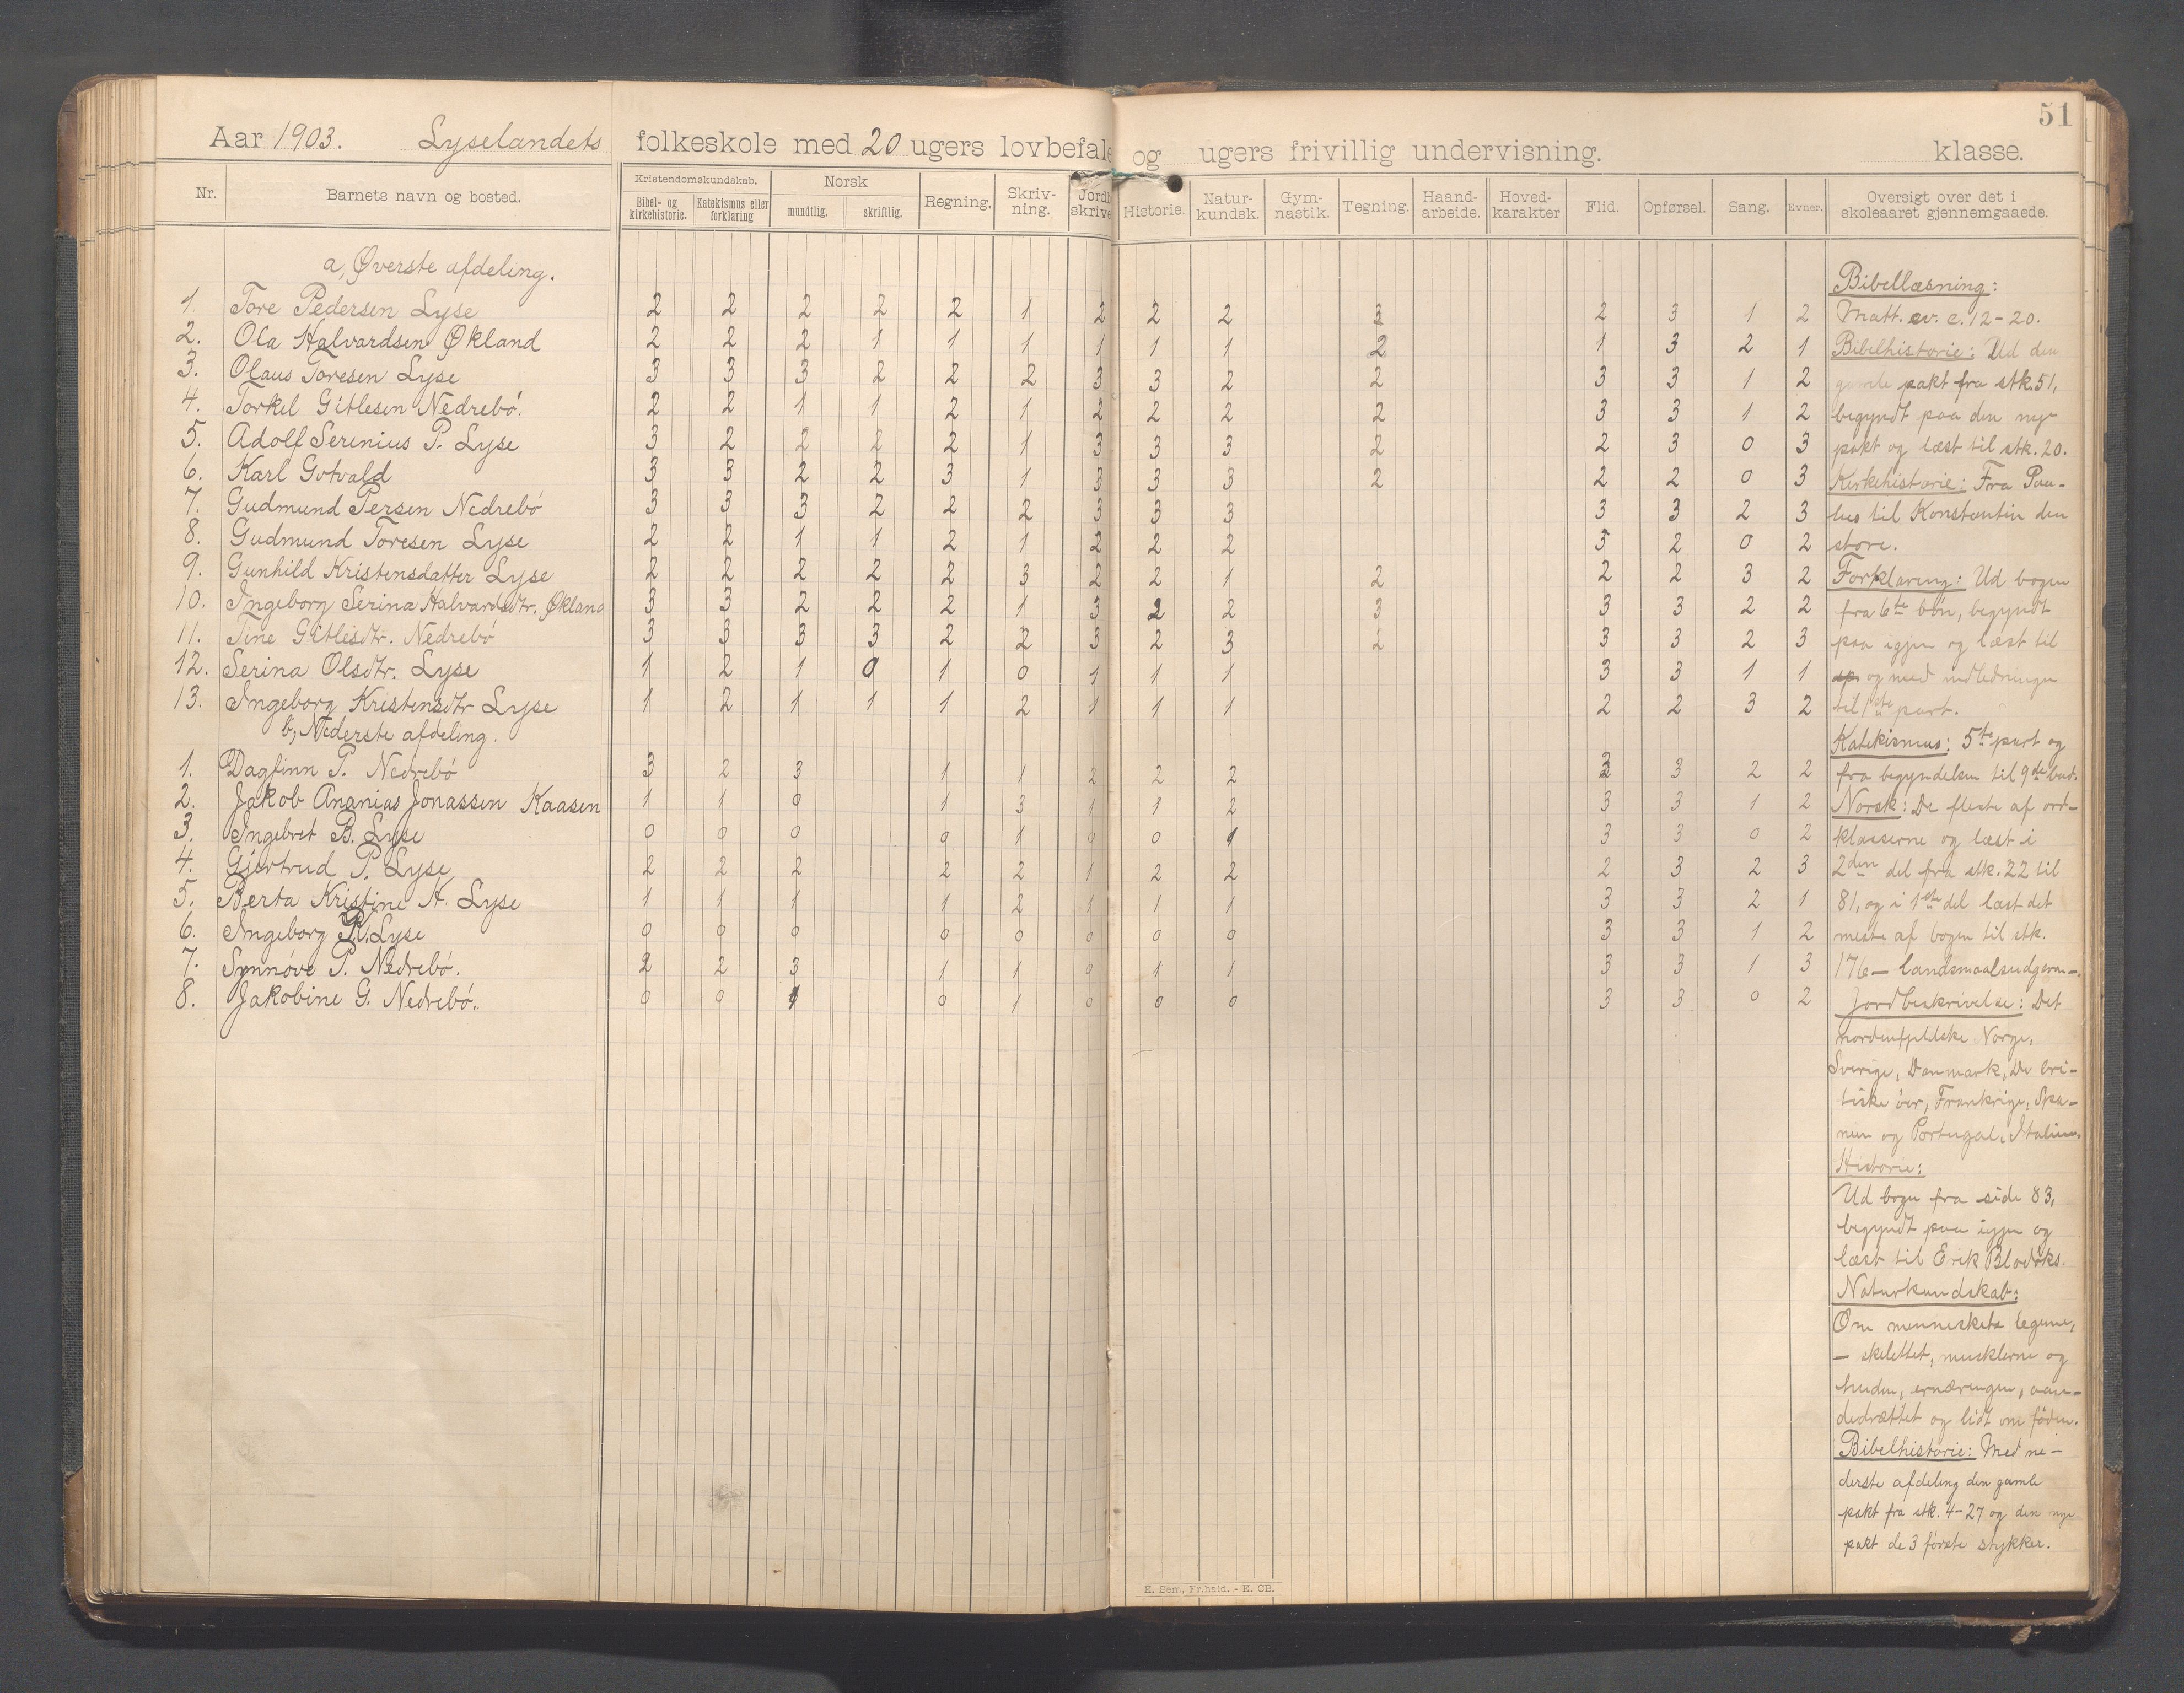 51
Aar 1903. Lyselandets folkeskole med 20 ugers lovbefale og ugers frivillig undervisning. klasse.
Nr. Barnets navn og bosted. Kristendomskundskab. Bibel- og kirkehistorie. Katekismus eller forklaring Norsk mundtlig. skriftlig. Regning. Skriv-ning. Jordb skrive Historie. Natur-kundsk. Gym-nastik. Tegning. Haand-arbeide. Hoved-karakter Flid. Opførsel. Sang. Evner. Oversigt over det i skoleaaret gjennemgaaede.
a, Øverste afdeling.
1. Tore Pedersen Lyse 2 2 2 2 2 1 2 2 2 3 2 3 1 2
2. Ola Halvardsen Økland 2 2 2 1 1 1 1 1 1 2 1 3 2 1
3. Olaus Toresen Lyse 3 3 3 2 2 2 3 3 2 2 3 3 1 2
4. Torkel Gitlesen Nedrebö. 2 2 1 1 2 1 2 2 2 2 3 3 1 2
5. Adolf Serenius P. Lyse 3 2 2 2 2 1 3 3 3 2 2 3 0 3
6. Karl Gotvald 3 3 2 2 3 1 3 3 3 2 2 2 0 3
7. Gudmund Persen Nedrebö 3 3 3 2 2 2 3 3 3 3 3 2 3
8. Gudmund Toresen Lyse 2 2 1 1 2 1 2 2 2 3 2 0 2
9. Gunhild Kristensdatter Lyse 2 2 2 2 2 3 2 2 1 2 2 2 3 2
10. Ingeborg Serina Halvardsdtr. Økland 3 3 2 2 2 1 3 2 2 3 3 3 2 2
11. Tine Gitlesdtr. Nedrebö 3 3 3 3 2 2 3 2 3 2 3 3 2 3
12. Serina Olsdtr. Lyse 1 2 1 0 1 0 1 1 1 3 3 1 1
13. Ingeborg Kristensdtr Lyse 1 2 1 1 1 2 1 1 1 2 2 3 2
b, Nederste afdeling.
1. Dagfinn P. Nedrebö 3 2 3 1 1 2 2 2 3 3 2 2
2. Jakob Ananias Jonassen Kaasen 1 1 0 1 3 1 1 2 3 3 1 2
3. Ingebret B. Lyse 0 0 0 0 1 0 0 1 3 3 0 2
4. Gjertrud P. Lyse 2 2 2 2 2 1 2 2 2 3 2 3
5. Berta Kristine K. Lyse 1 1 1 1 2 1 1 1 3 3 2 1
6. Ingeborg Lyse 0 0 0 0 0 0 0 0 3 3 1 2
7. Synnöve P. Nedrebö. 2 2 3 1 1 0 1 1 3 3 1 3
8. Jakobine G. Nedrebö. 0 0 1 0 1 0 0 0 3 3 0 2
Bibellæsning:
Matt. ev. c. 12-20.
Bibelhistorie: Ud den
gamle pakt fra stk. 51,
begyndt paa den nye
pakt og læst til stk. 20.
Kirkehistorie: Fra Pau-
lus til Konstantin den
store.
Forklaring: Ud bogen
fra 6te bön, begyndt
paa igjen og læst til
og med indledningen
til 1ste part.
Katekismus: 5te part og
fra begyndelsen til 9de bud.
Norsk: De fleste af ord-
klasserne og læst i
2den del fra stk. 22 til
81, og i 1ste del læst det
meste af bogen til stk.
176 - landsmaalsudgaven-.
Jordbeskrivelse: Det
nordenfjeldske Norge,
Sverige, Danmark, De bri-
tiske öer, Frankrige, Spa-
nien og Portugal, Italien.
Historie:
Ud bogen fra side 83,
begyndt paa igjen og
læst til Erik Blodöks.
Naturkundskab:
Om menneskets legeme,
- skelettet, musklerne og
huden, ernæringen, aan-
dedrættet og lidt om föden.
Bibelhistorie: Med ne-
derste afdeling den gamle
pakt fra stk. 4-27 og den nye
pakt de 3 förste stykker.
E. Sem, Fr.hald. - E. CB.